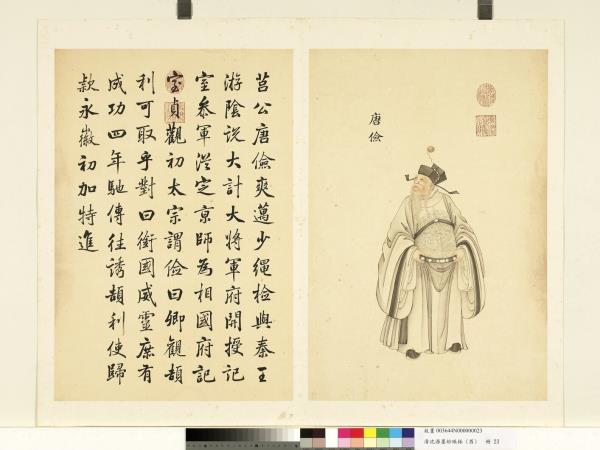 唐儉
莒公唐儉爽邁少繩檢與秦王
游陰說大計大將軍府開授記
室參軍從定京師為相國府記
室貞觀初太宗謂儉曰卿觀頡
利可取乎對曰銜國威靈庶有
成功四年馳傳往誘頡利使歸
款永徽初加特進
故畫 003644N000000023
清沈源墨妙珠林（酉） 冊 23